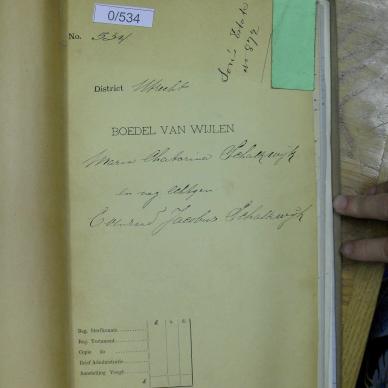 0/534
No. 534
Joris Estate
No 872
District Utrecht
BOEDEL VAN WIJLEN
Maria Chatarina Schalkwijk
en nog
Coenraad Jacobus Schalkwijk
£ s. d.
Reg. Sterfkennis
Reg. Testament
Copie do
Brief Administratie
Aanstelling Voogd
£